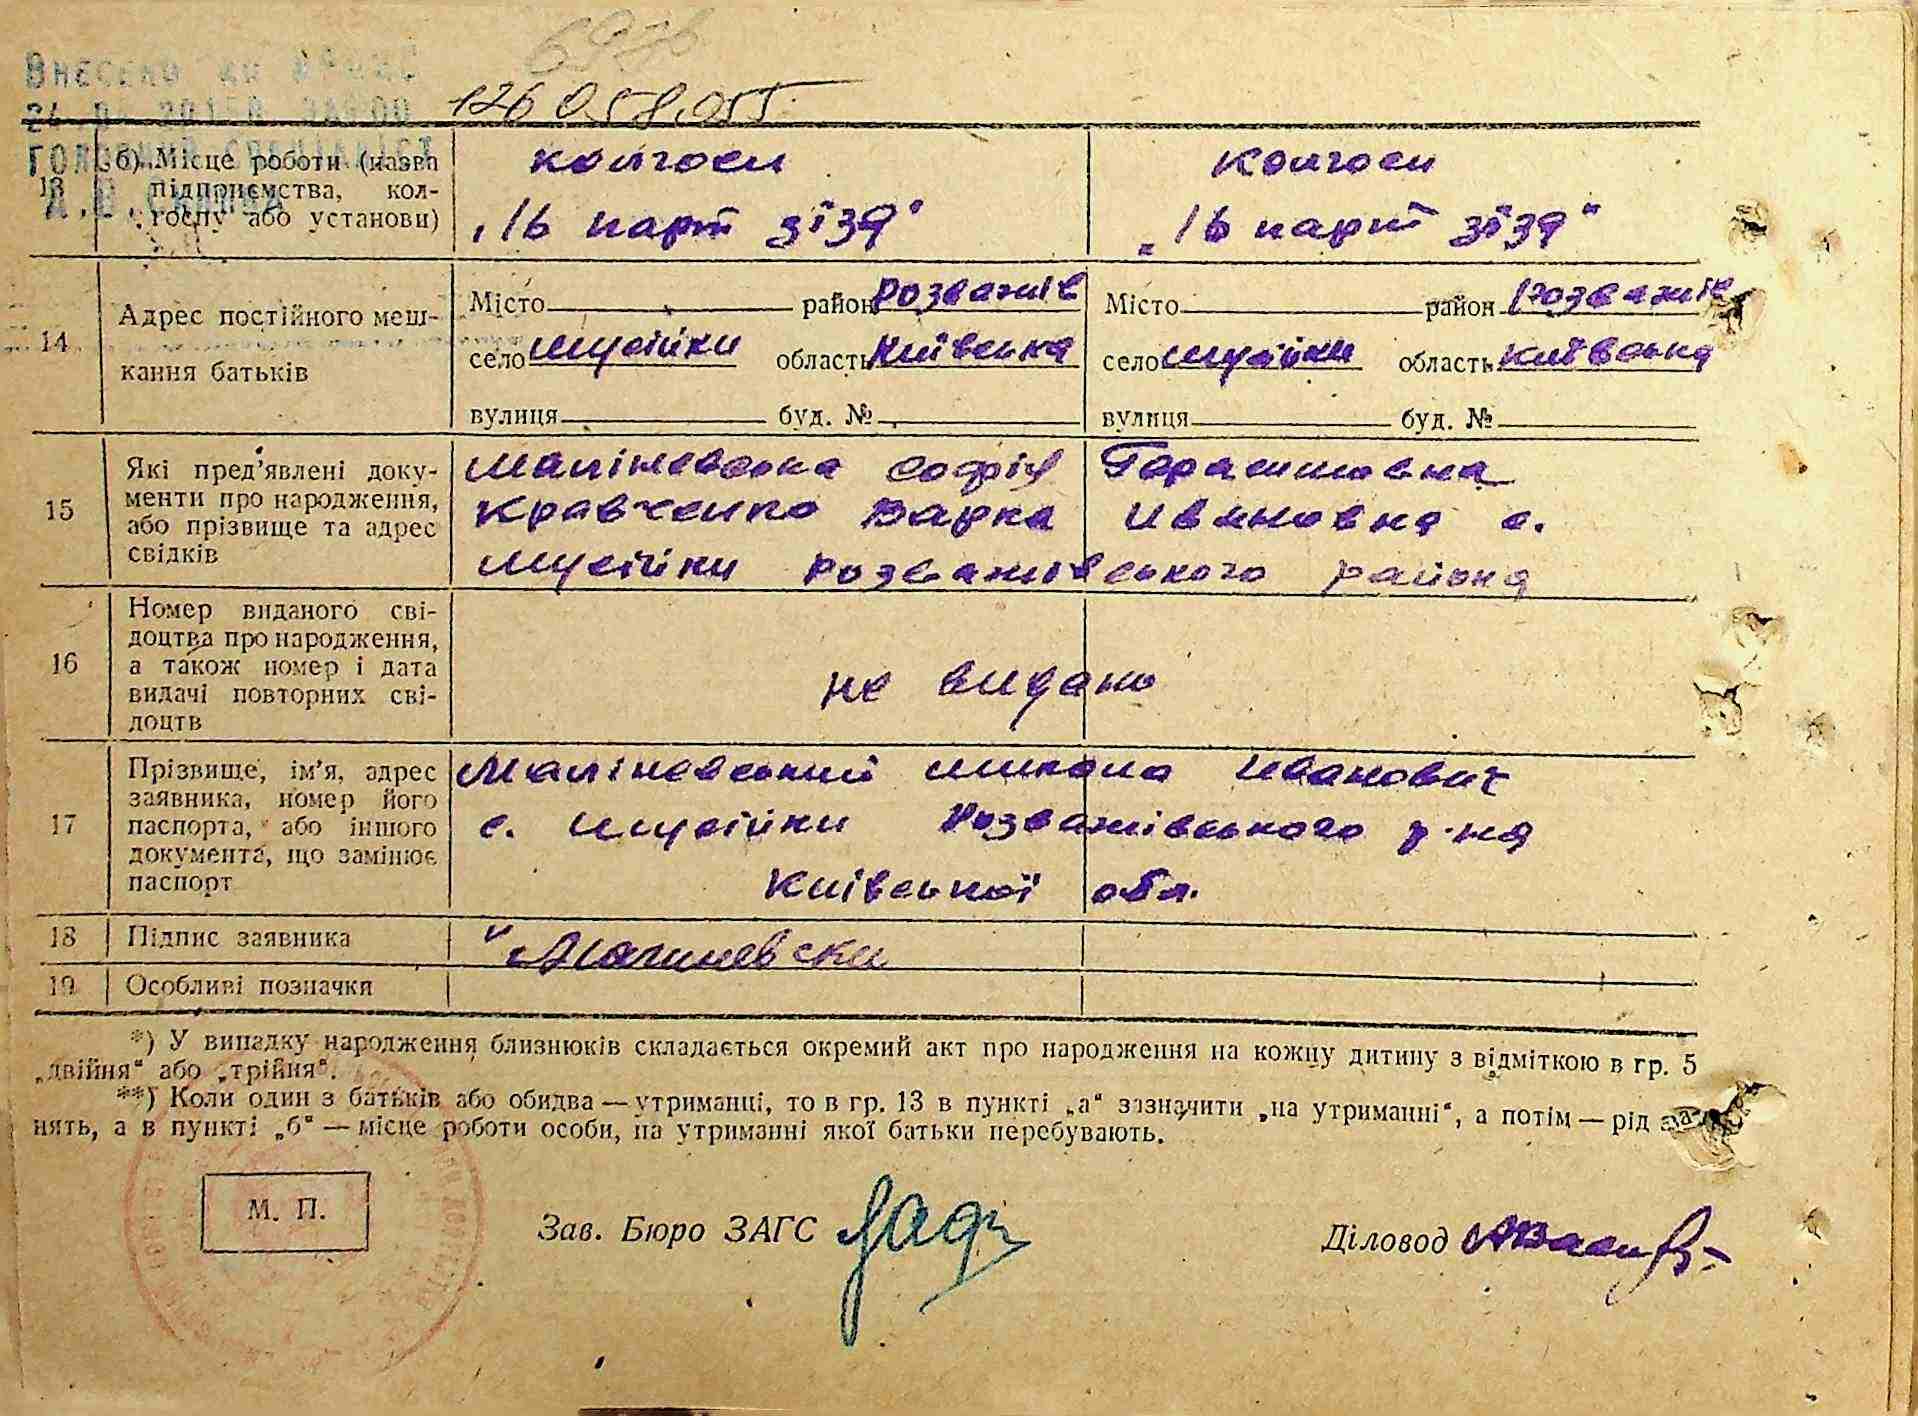 697б
126 058.055
13 б) Місце роботи (назва підприємства, колгоспу або установи)
колгосп колгосп
„16 парт зїзд“ „16 парт зїзд“
14 Адрес постійного мешкання батьків
Місто район Розважів Місто район Розважів
село Мусійки область Київська село Мусійки область Київська
вулиця буд. № вулиця буд. №
15 Які пред’явлені документи про народження, або прізвище та адрес свідків
Маліневська Софія Гарасимовна
Кравченко Варка Ивановна с.
Мусійки Розважівського района
16 Номер виданого свідоцтва про народження, а також номер і дата видачі повторних свідоцтв
не видано
17 Прізвище, ім’я, адрес заявника, номер його паспорта, або іншого документа, що замінює паспорт
Маліневський Микола Иванович
с. Мусійки Розважівського р-на
Київської обл.
18 Підпис заявника
Малиневски
19 Особливі позначки
*) У випадку народження близнюків складається окремий акт про народження на кожну дитину з відміткою в гр. 5
„двійня“ або „трійня“.
**) Коли один з батьків або обидва — утриманці, то в гр. 13 в пункті „а“ зазначити „на утриманні“, а потім — рід за-
нять, а в пункті „б“ — місце роботи особи, на утриманні якої батьки перебувають.
М. П.
Зав. Бюро ЗАГС Діловод